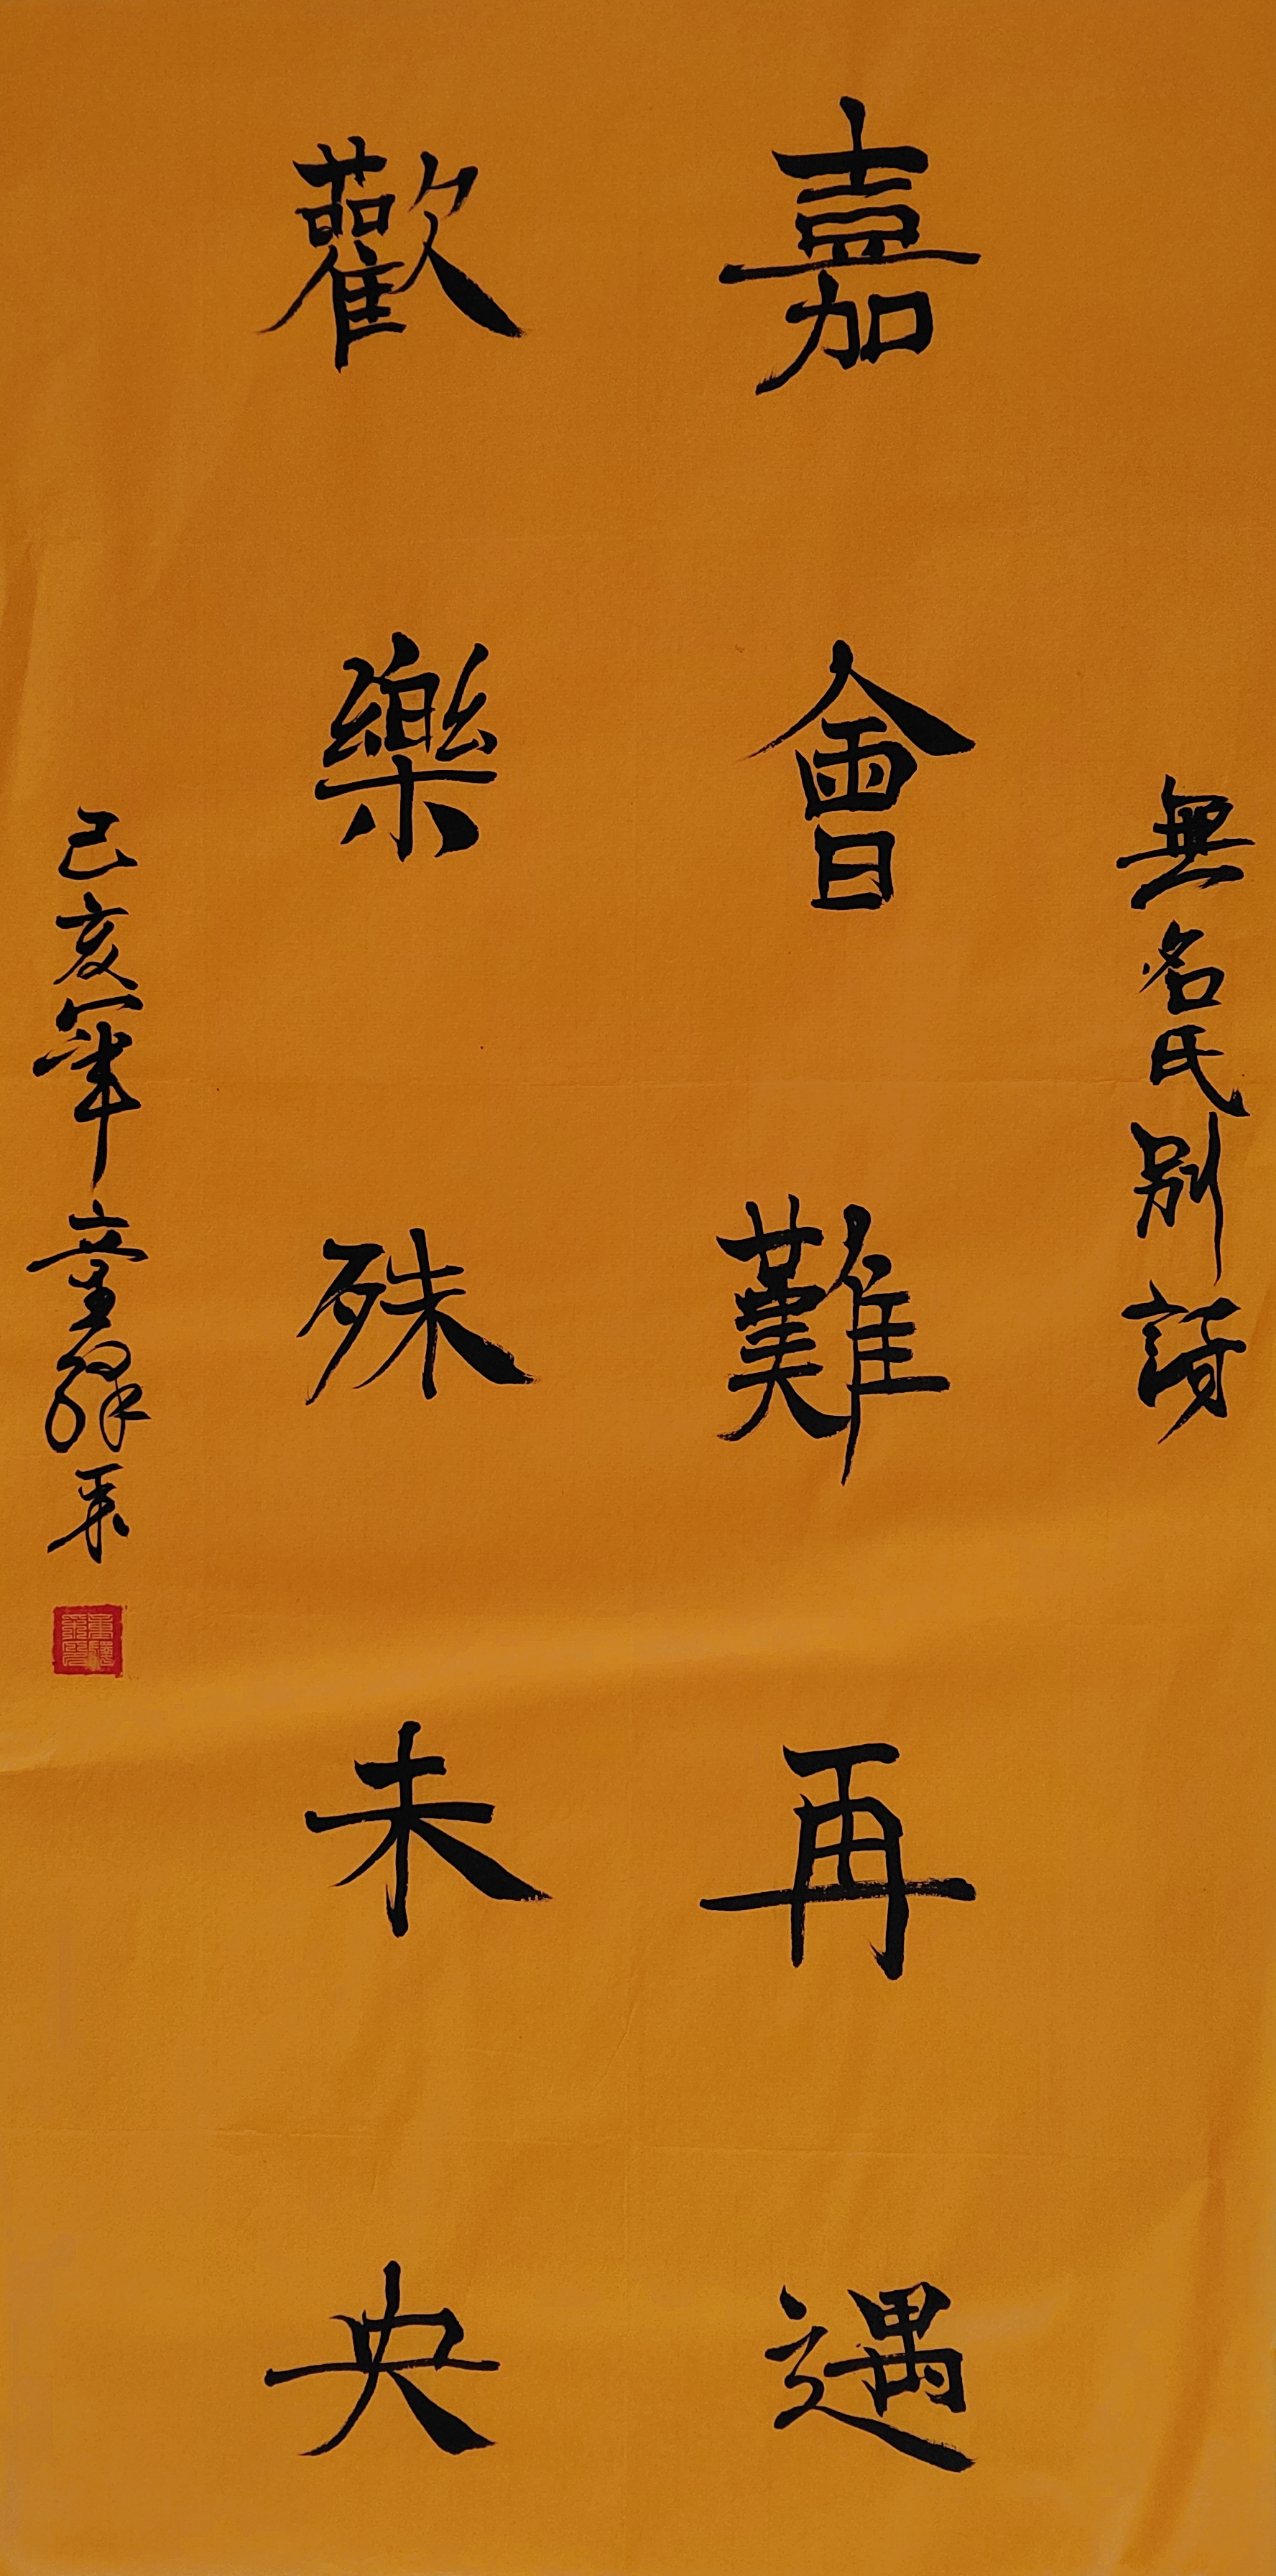 無名氏別詩
嘉會難再遇
歡樂殊未央
己亥年童